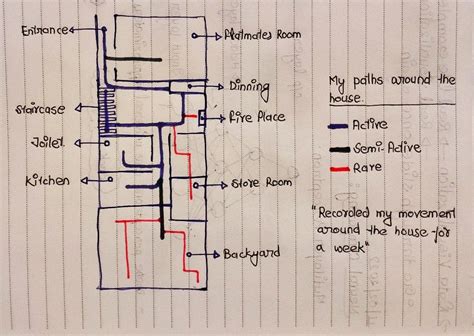 Entrance
Flatmates Room
Dinning
Staircase
Fire Place
Toilet
Kitchen
Store Room
Backyard
My paths around the
house.
Active
Semi-Active
Rare
"Recorded my movement
around the house for
a week"